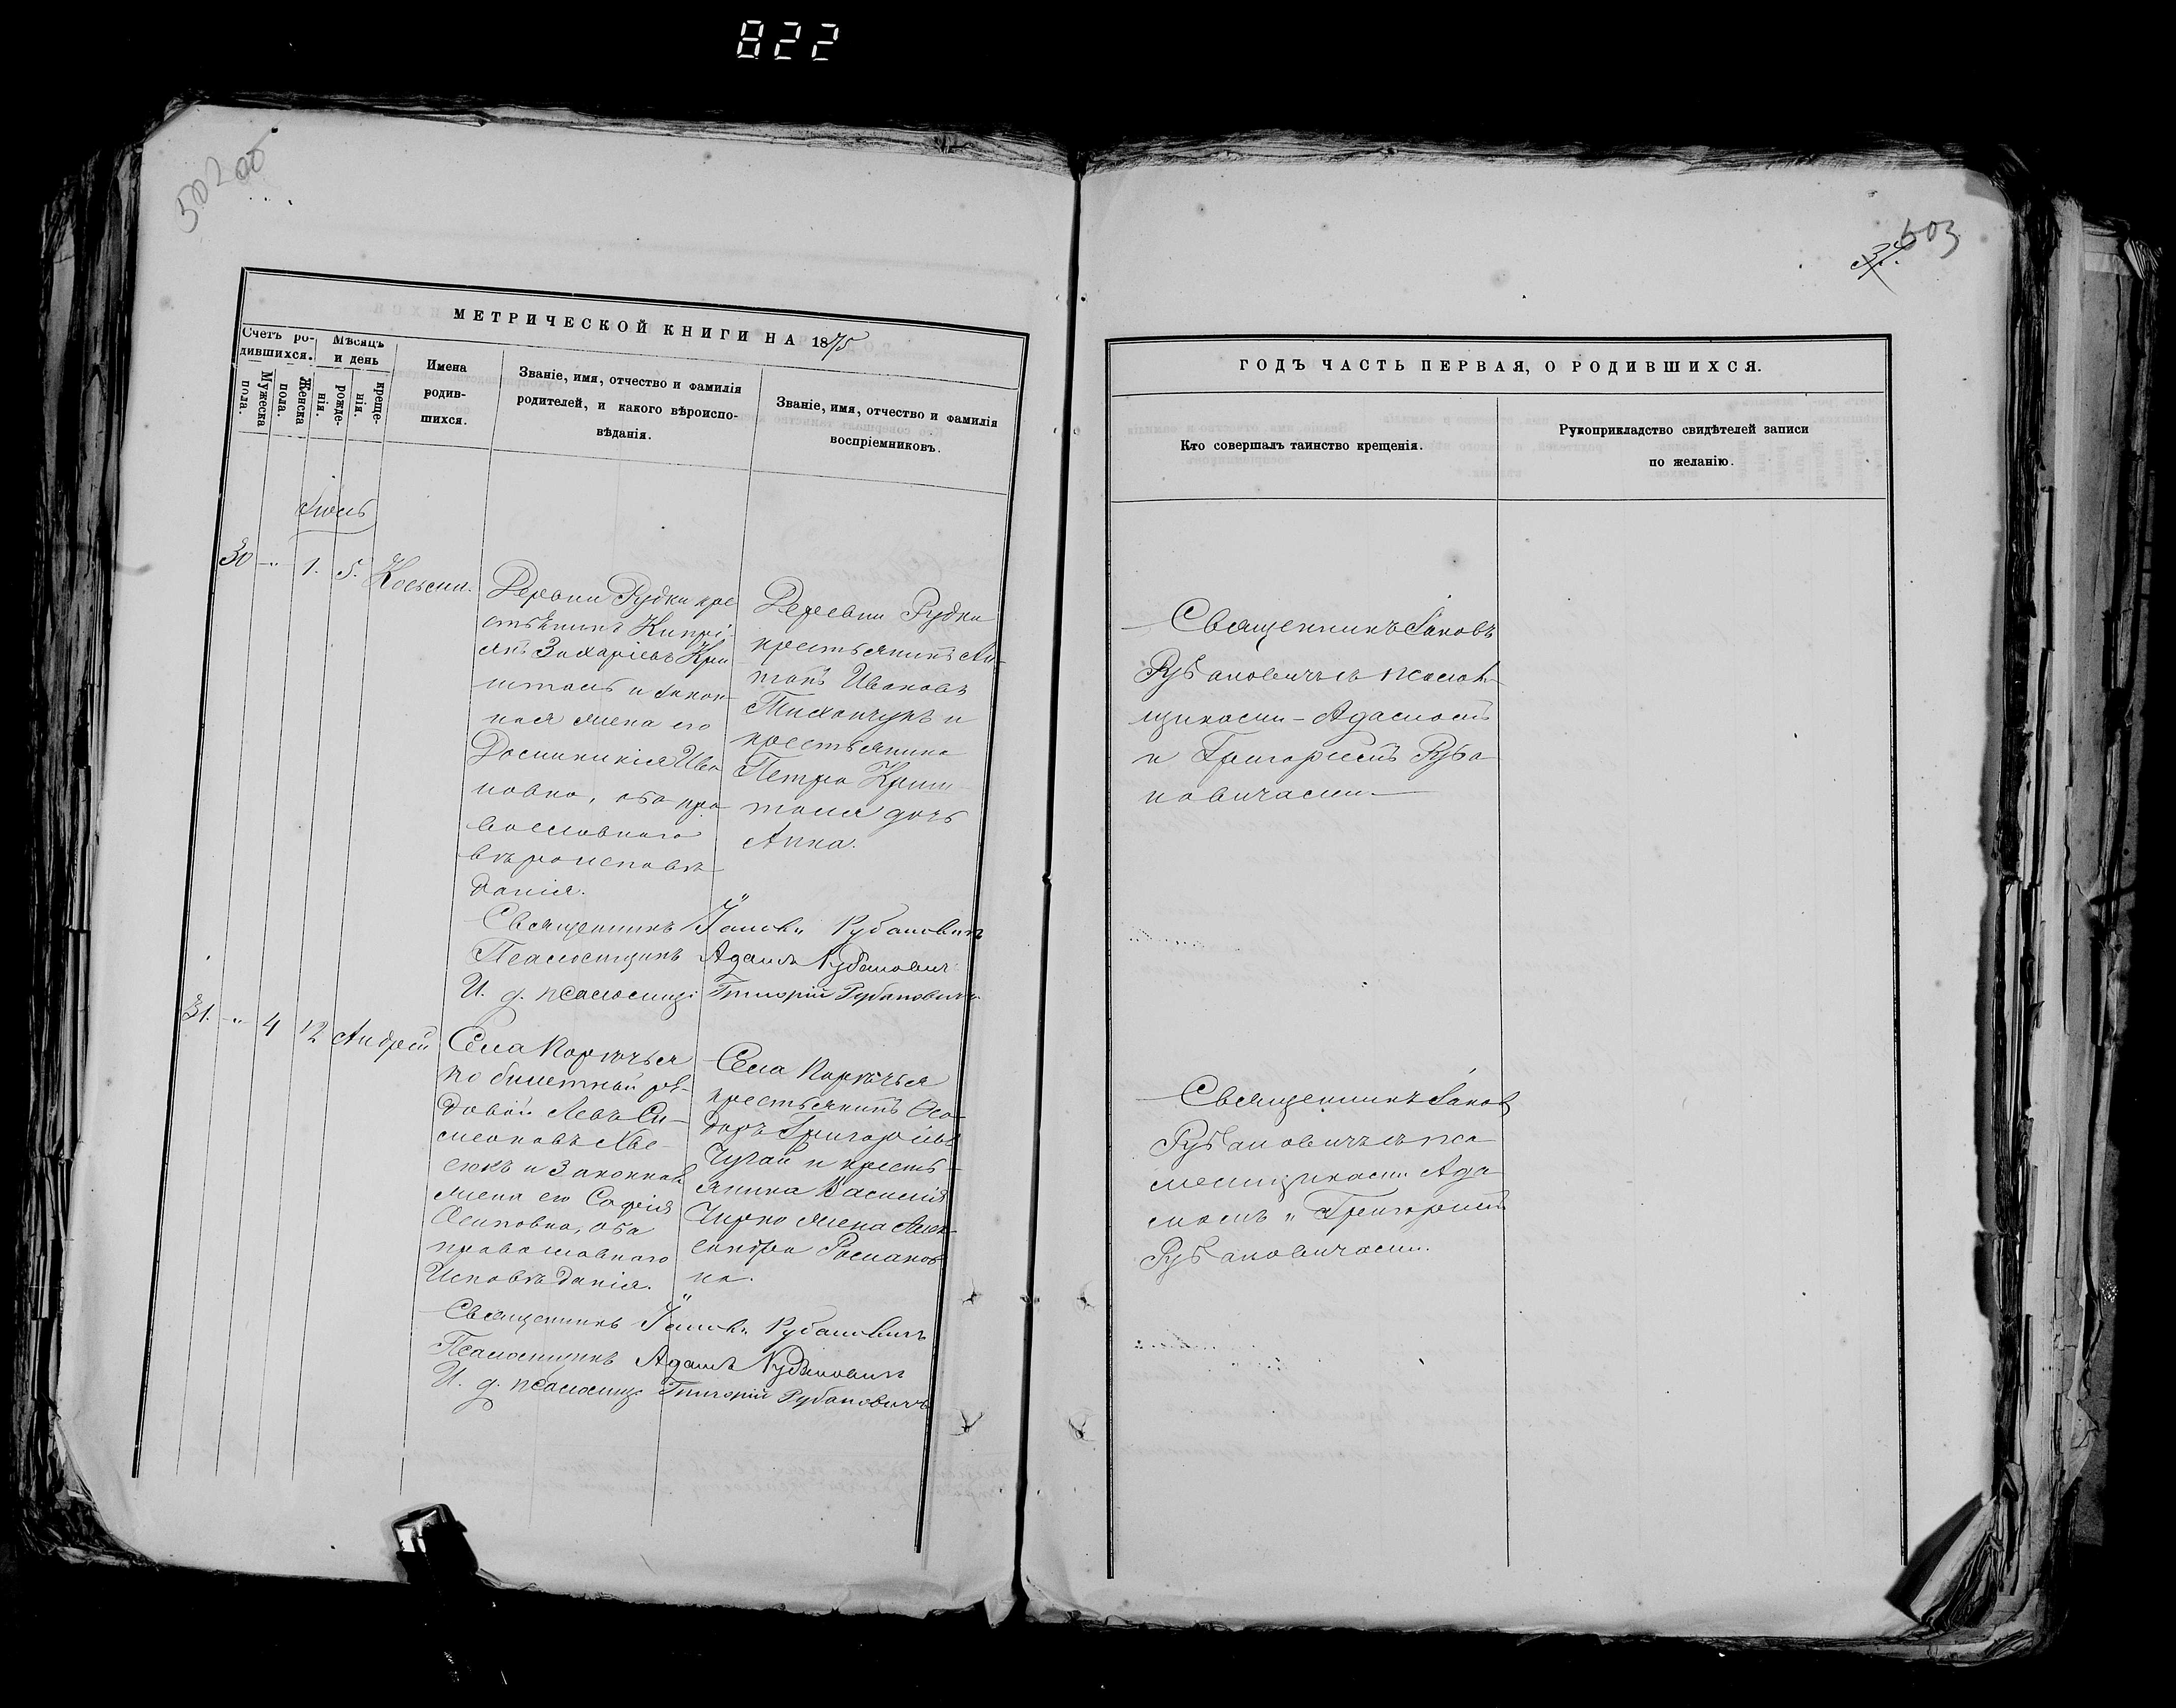 822
503
МЕТРИЧЕСКОЙ КНИГИ НА 1875
Счетъ родившихся.
Мужеска пола.
Женска пола.
Мѣсяцъ и день
рожденія.
крещенія.
Имена
родив-
шихся.
Званіе, имя, отчество и фамилія
родителей, и какого вѣроиспо-
вѣданія.
Званіе, имя, отчество и фамилія
воспріемниковъ.
30 " 1. 5.
Деревни Рудки кре
стьянинъ Кипрі-
янъ Захаріевъ Кри
штоль и закон
ная жена его
Доминикія Ива
новна, оба пра
вославнаго
вѣроисповѣ
данія.
Деревни Рудки
крестьянинъ Ан-
тонъ Ивановъ
Тихончукъ и
крестьянина
Петра Криш
толя дочь
Анна.
Священникъ Іаковъ Рубановичъ
Псаломщикъ Адамъ Рубановичъ
И. д. псаломщ: Григорій Рубановичъ
31. " 4 12 Андрей
Села Порѣчья
билетный ря-
довой Левъ Си-
меоновъ
и законная
жена его Софія
Осиповна, оба
православнаго
Исповѣданія.
Села Порѣчья
крестьянинъ Ѳео-
доръ Григорьевъ
Чугай и кресть-
янина Василія
Чирко жена Алек-
сандра Романов
на.
Священникъ Іаковъ Рубановичъ
Псаломщикъ Адамъ Рубановичъ
И. д. псаломщ: Григорій Рубановичъ
ГОДЪ ЧАСТЬ ПЕРВАЯ, О РОДИВШИХСЯ.
Кто совершалъ таинство крещенія.
Рукоприкладство свидѣтелей записи
по желанію.
Священникъ Іаковъ
Рубановичъ съ псалом-
щиками - Адамомъ
и Григоріемъ Руба
новичами.
Священникъ Іаковъ
Рубановичъ съ пса
ломщиками Ада
момъ и Григоріемъ
Рубановичами.